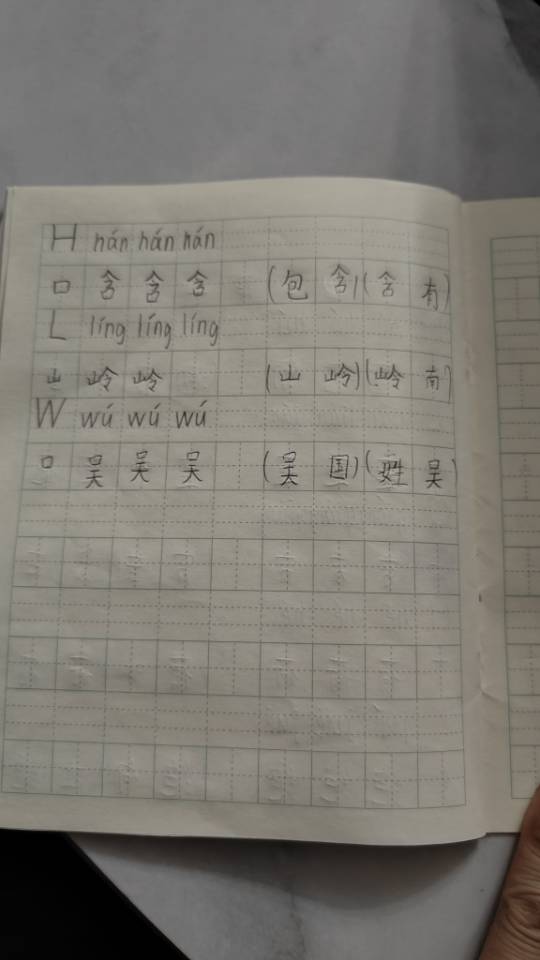 H hán hán hán
口 含 含 含 (包 含)(含 有)
L líng líng líng
山 岭 岭 (山 岭)(岭 南)
W wú wú wú
口 吴 吴 吴 (吴 国)(姓 吴)